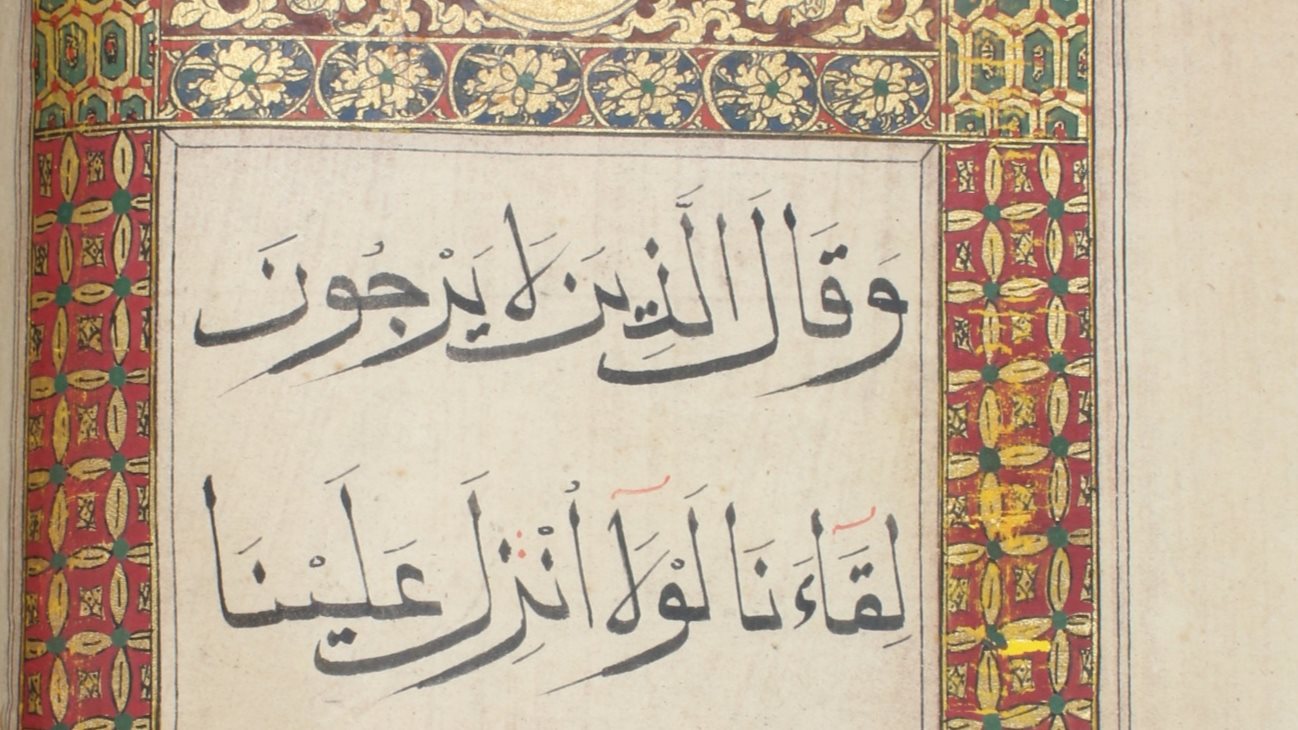 وَقَالَ الَّذِينَ لَا يَرْجُونَ
لِقَآءَنَا لَوْلَآ أُنْزِلَ عَلَيْنَا